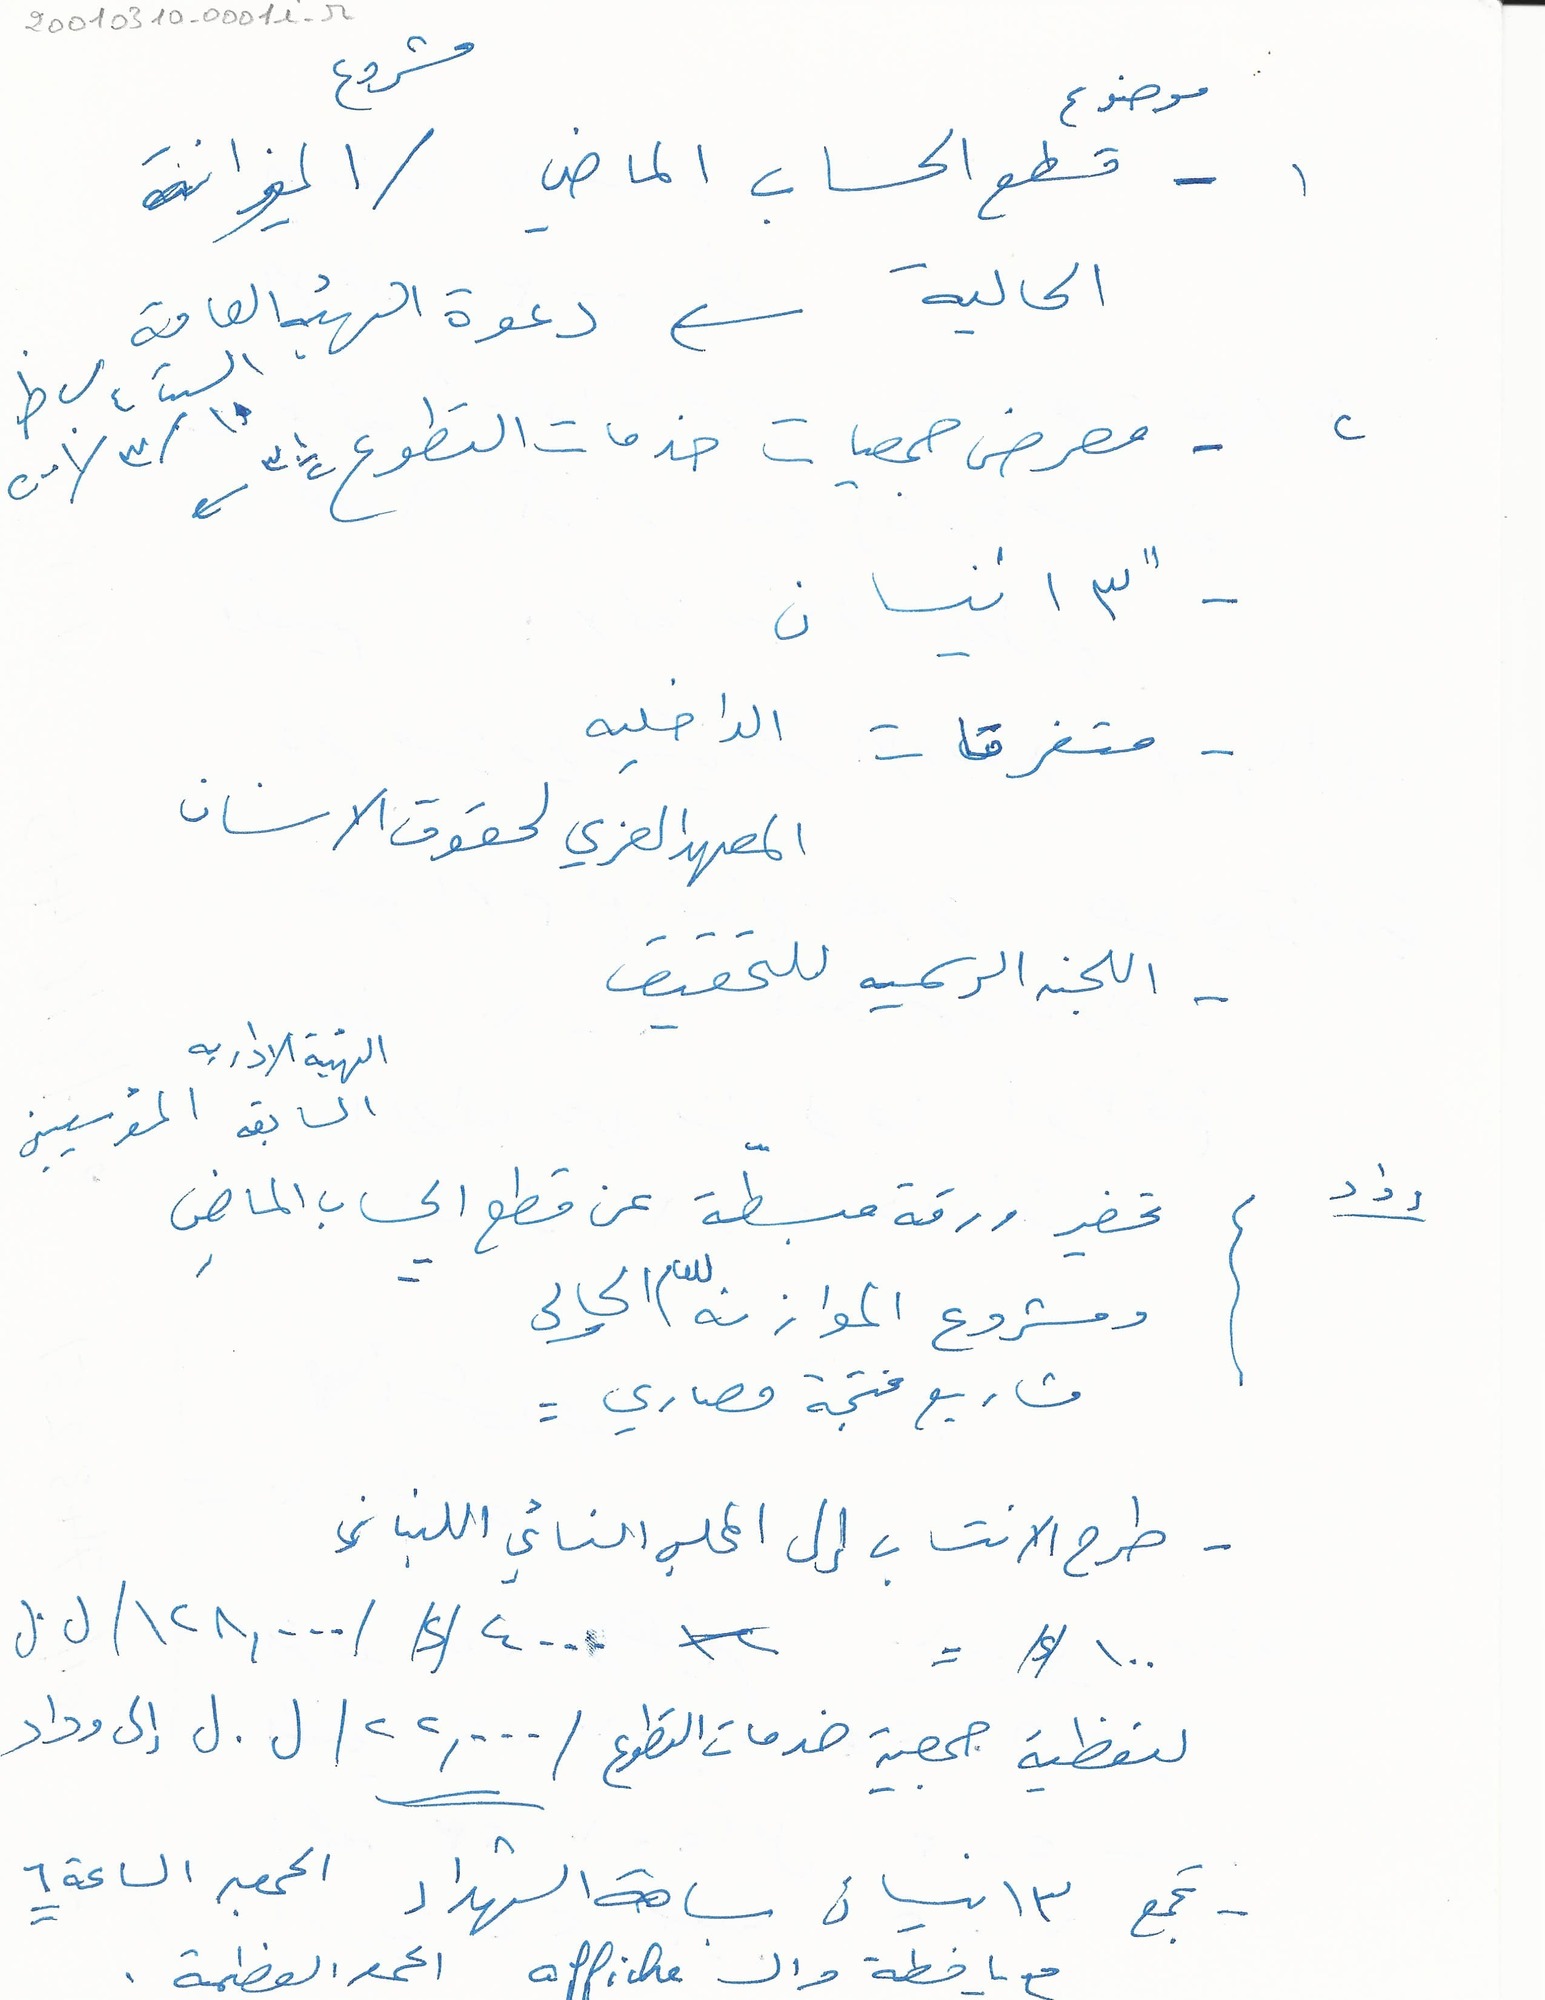 20010310-0001i-r
موضوع مشروع
١ - قطع الحساب الماضي / الميزانة
الحالية ← دعوة الهيئة العامة
السبت ٤ ب ظ
٢ - معرض جمعيات خدمات التطوع ١٠/٣/٢٠٠١
- "١٣ نيسان
- متفرقات الداخليه
المعهد العربي لحقوق الانسان
- اللجنه الرسميه للتحقيق
الهيئة الاداريه
السابقه المؤسسين
وداد { تحضير ورقة مبسطّة عن قطع الحساب الماضي
ومشروع الموازنه للعام الحالي
مشاريع منتجة مصاري =
- طرح الانتساب إلى المجلس النسائي اللبناني
١٠٠ /$/ = /$/ /١٢٨,٠٠٠/ ل.ل
لتغطية جمعية خدمات التطوع /٢٢,٠٠٠/ ل.ل إلى وداد
- تجمع ١٣ نيسان ساحة الشهداء الجمعه الساعة ٦
مع يافطة وال affiche